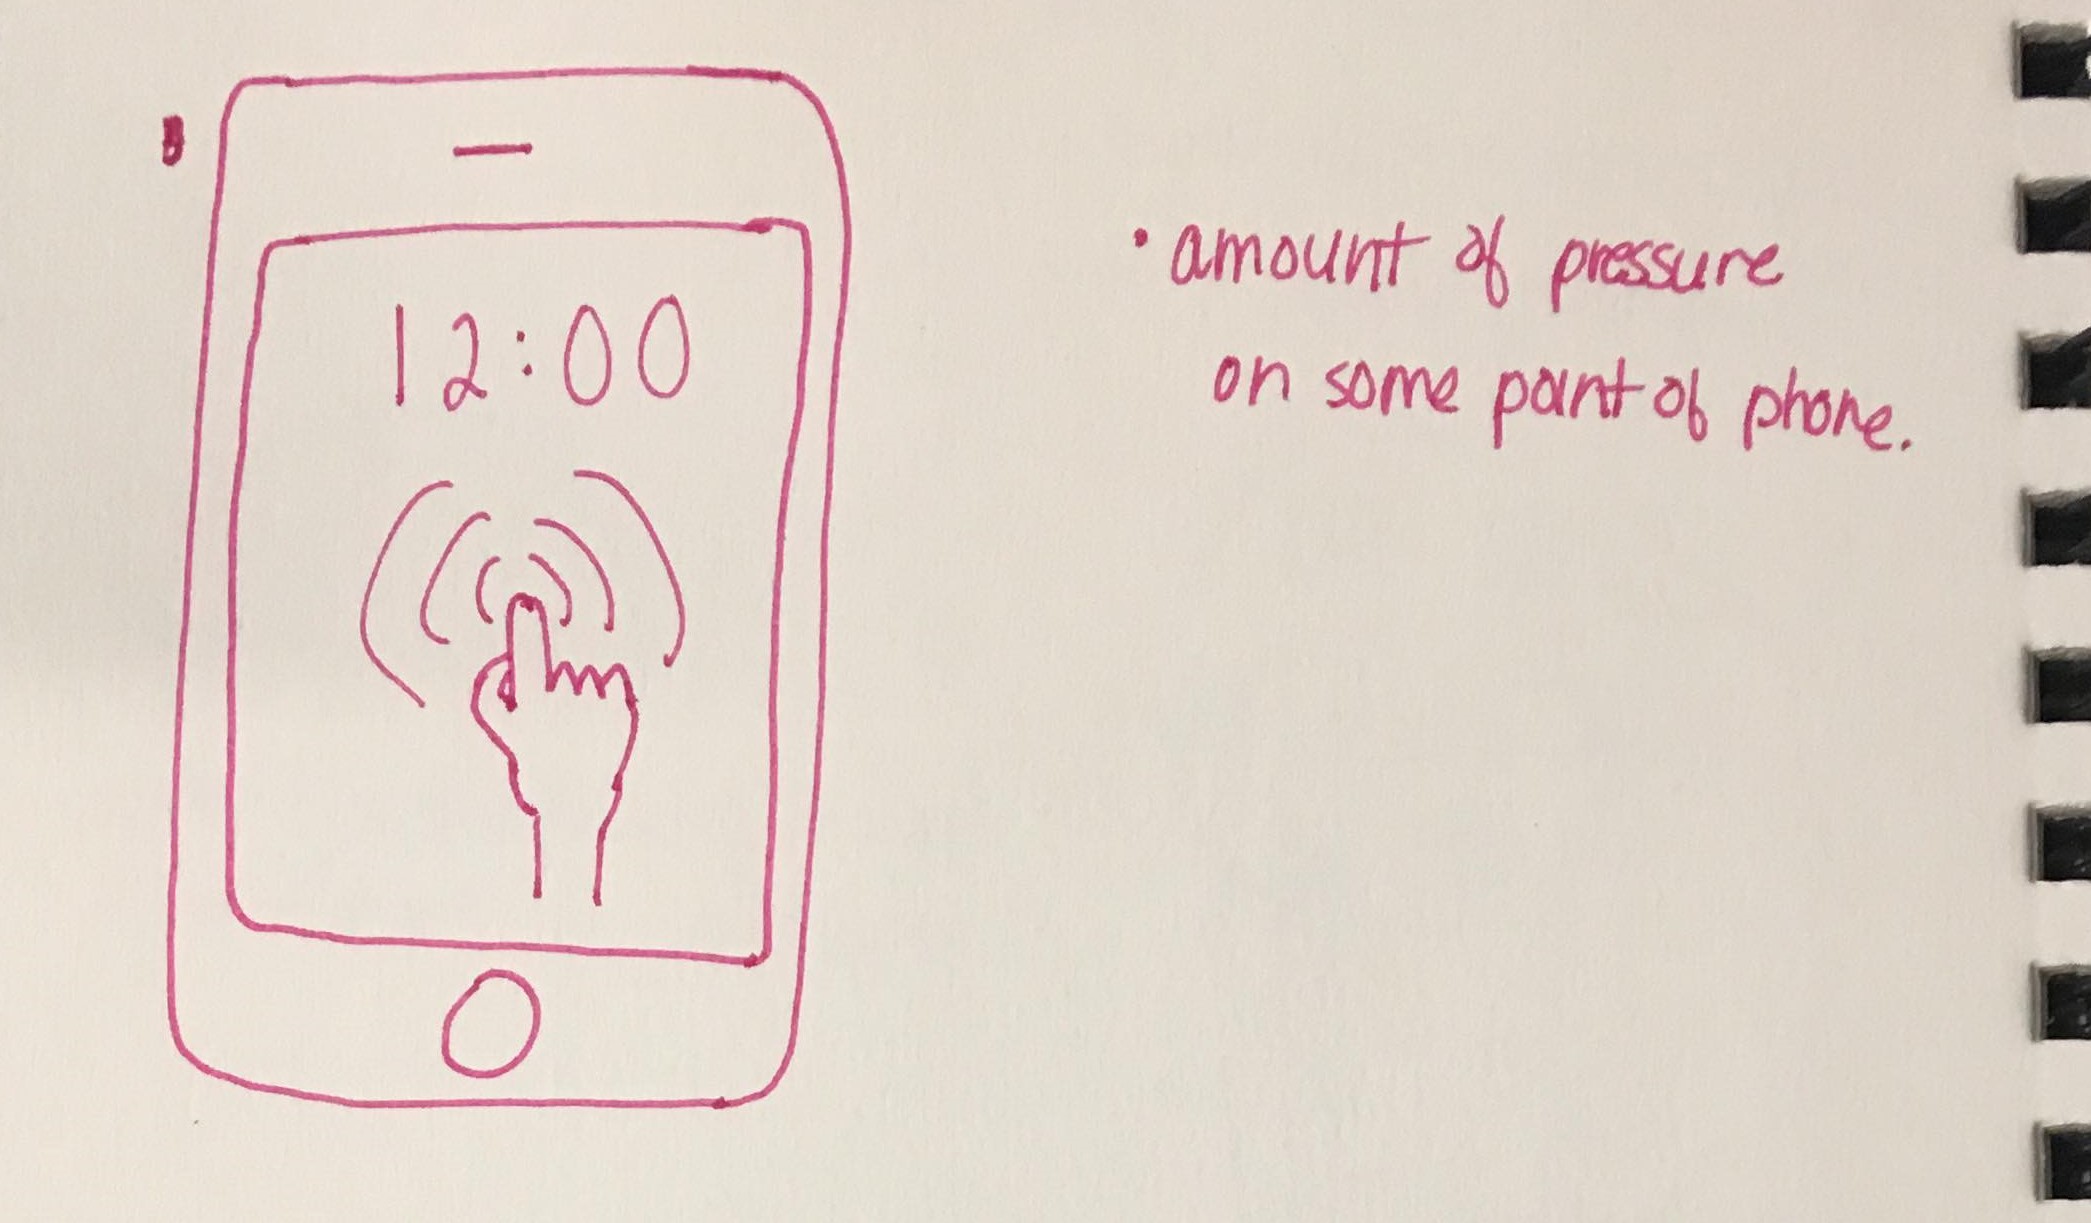 12:00
• amount of pressure
on some point of phone.